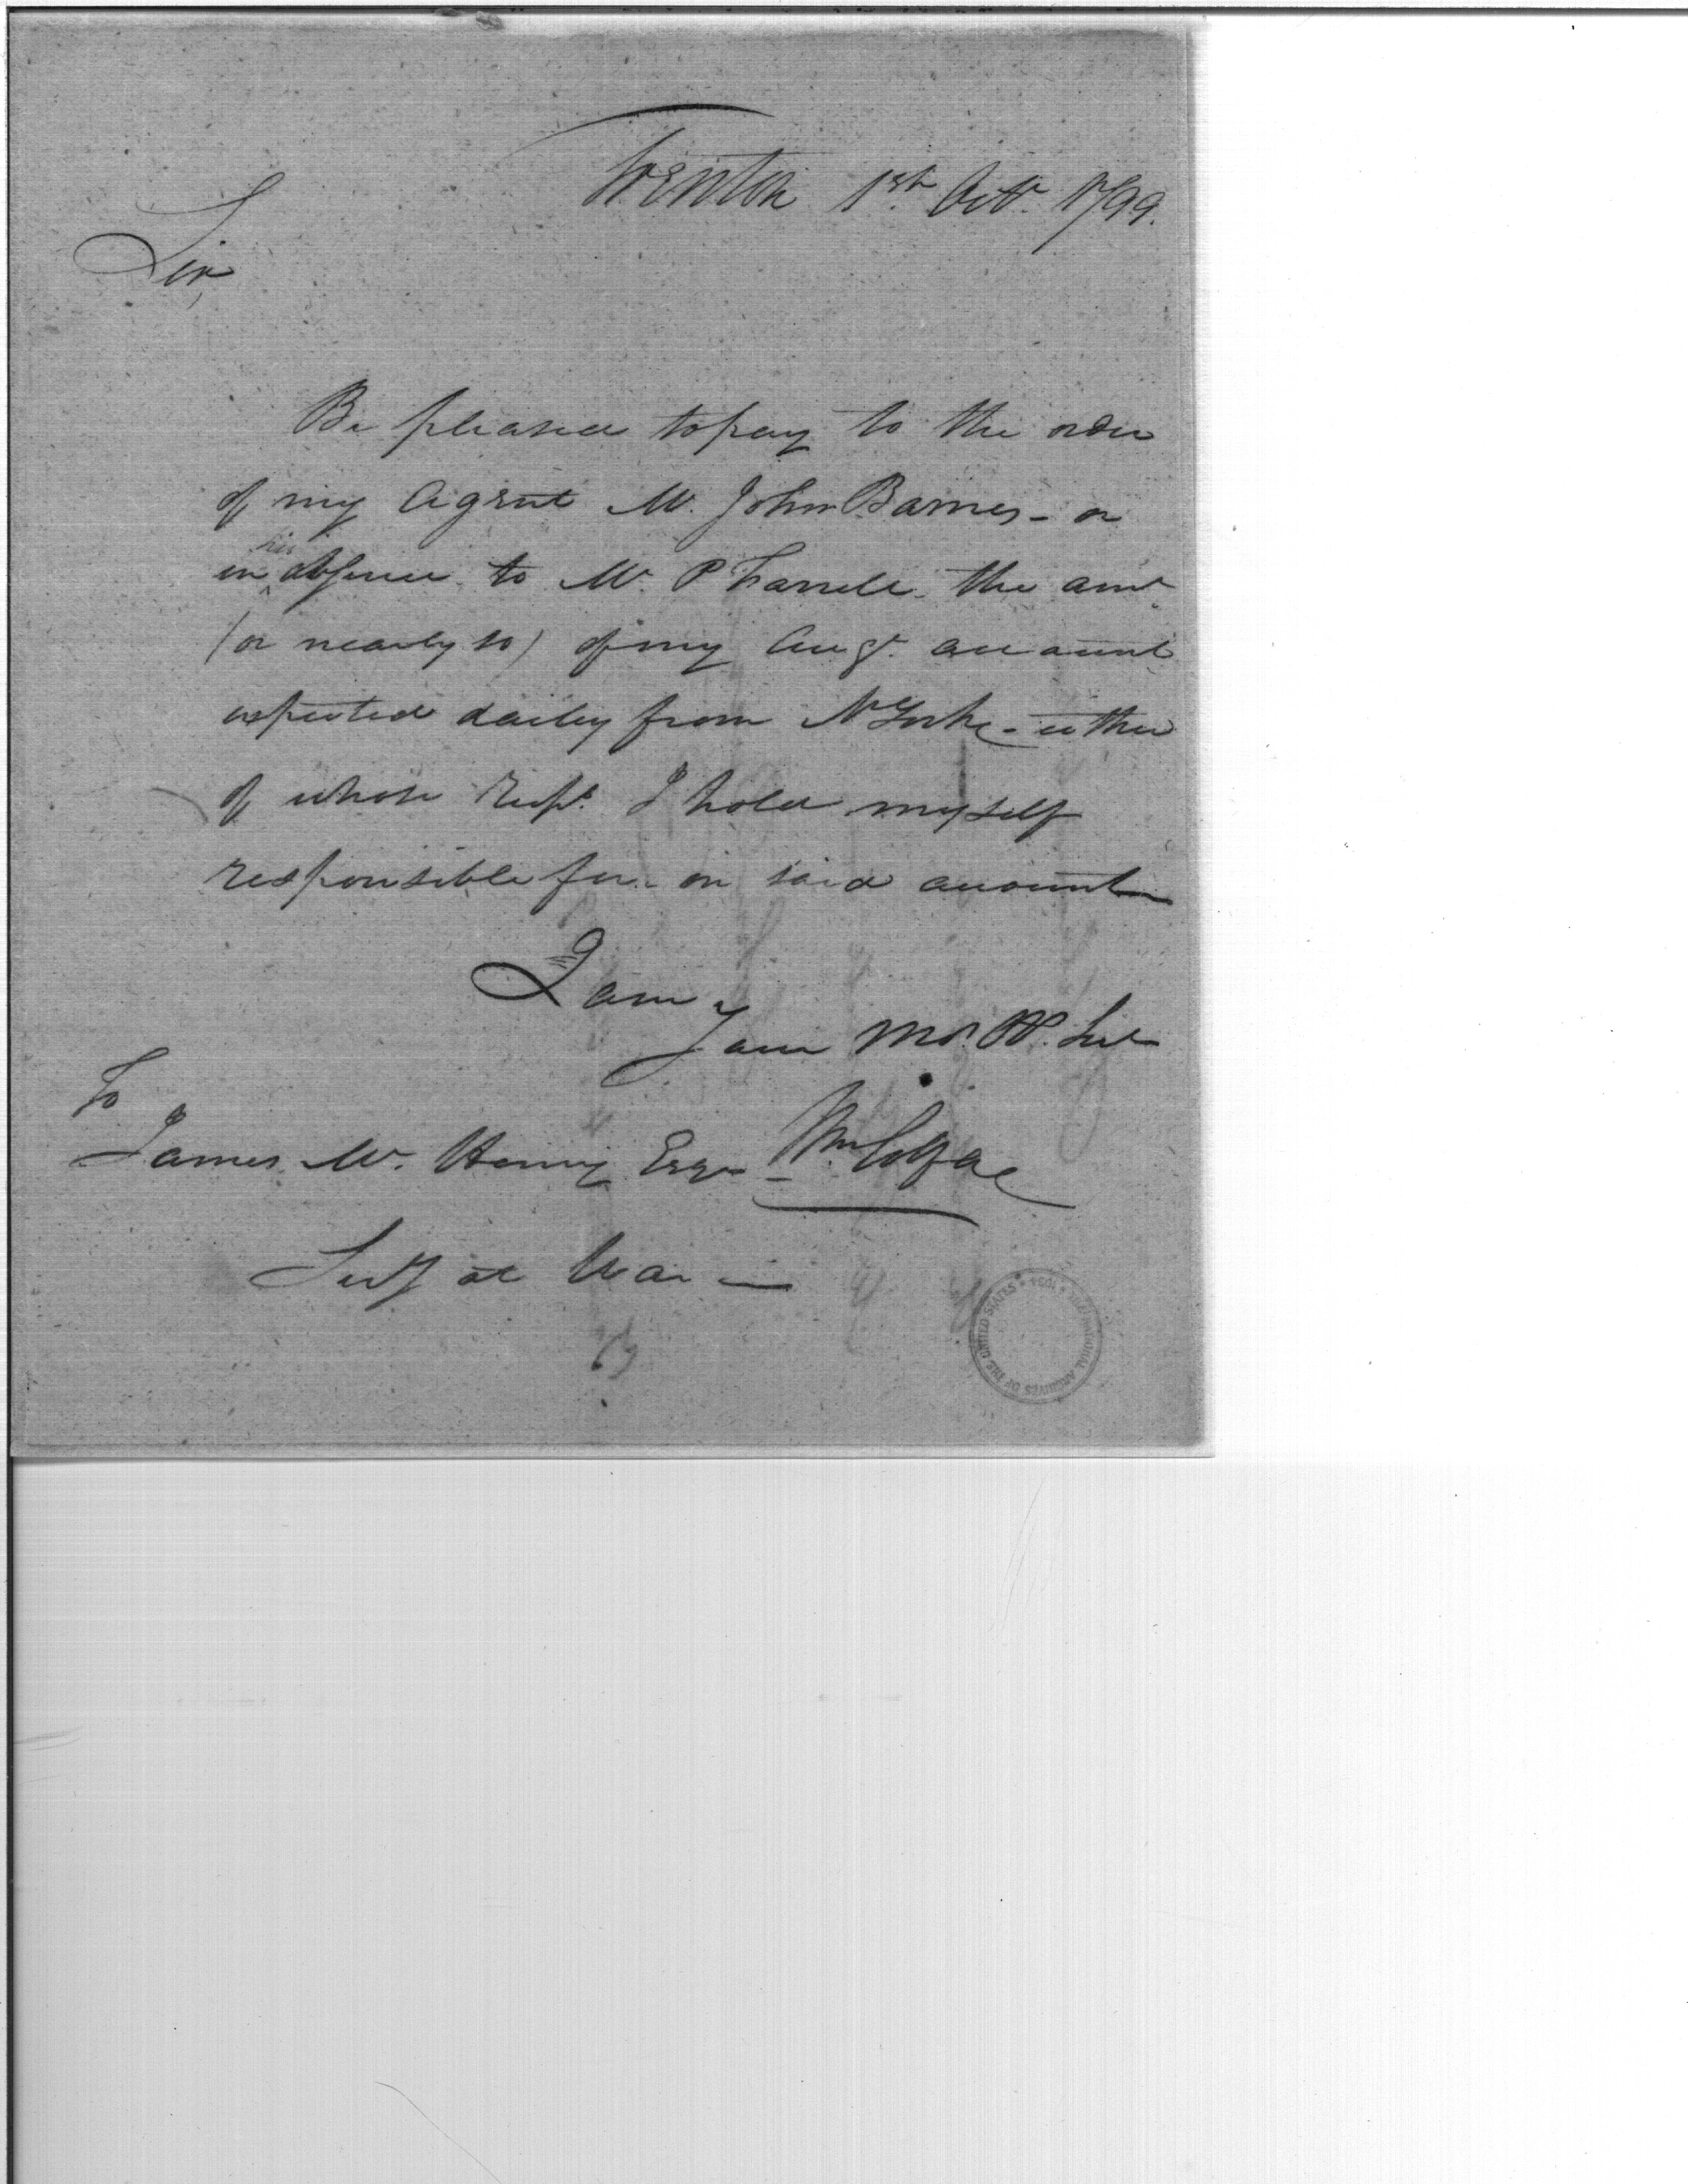 Trenton 1st Octr. 1799.
Sir,
Be pleased to pay to the order
of my Agent Mr. John Barnes - or
in his absence to Mr. P Farrell - the amt.
(or nearly so) of my Augt. account
expected daily from N York - either
of whose rect. I hold myself
responsible for - on said account
I am
Your Mo. Ob. Sert
To
James Mc. Henry Esqr - Wm Colfax
Secy at War -
THE NATIONAL ARCHIVES OF THE UNITED STATES • 1934 •